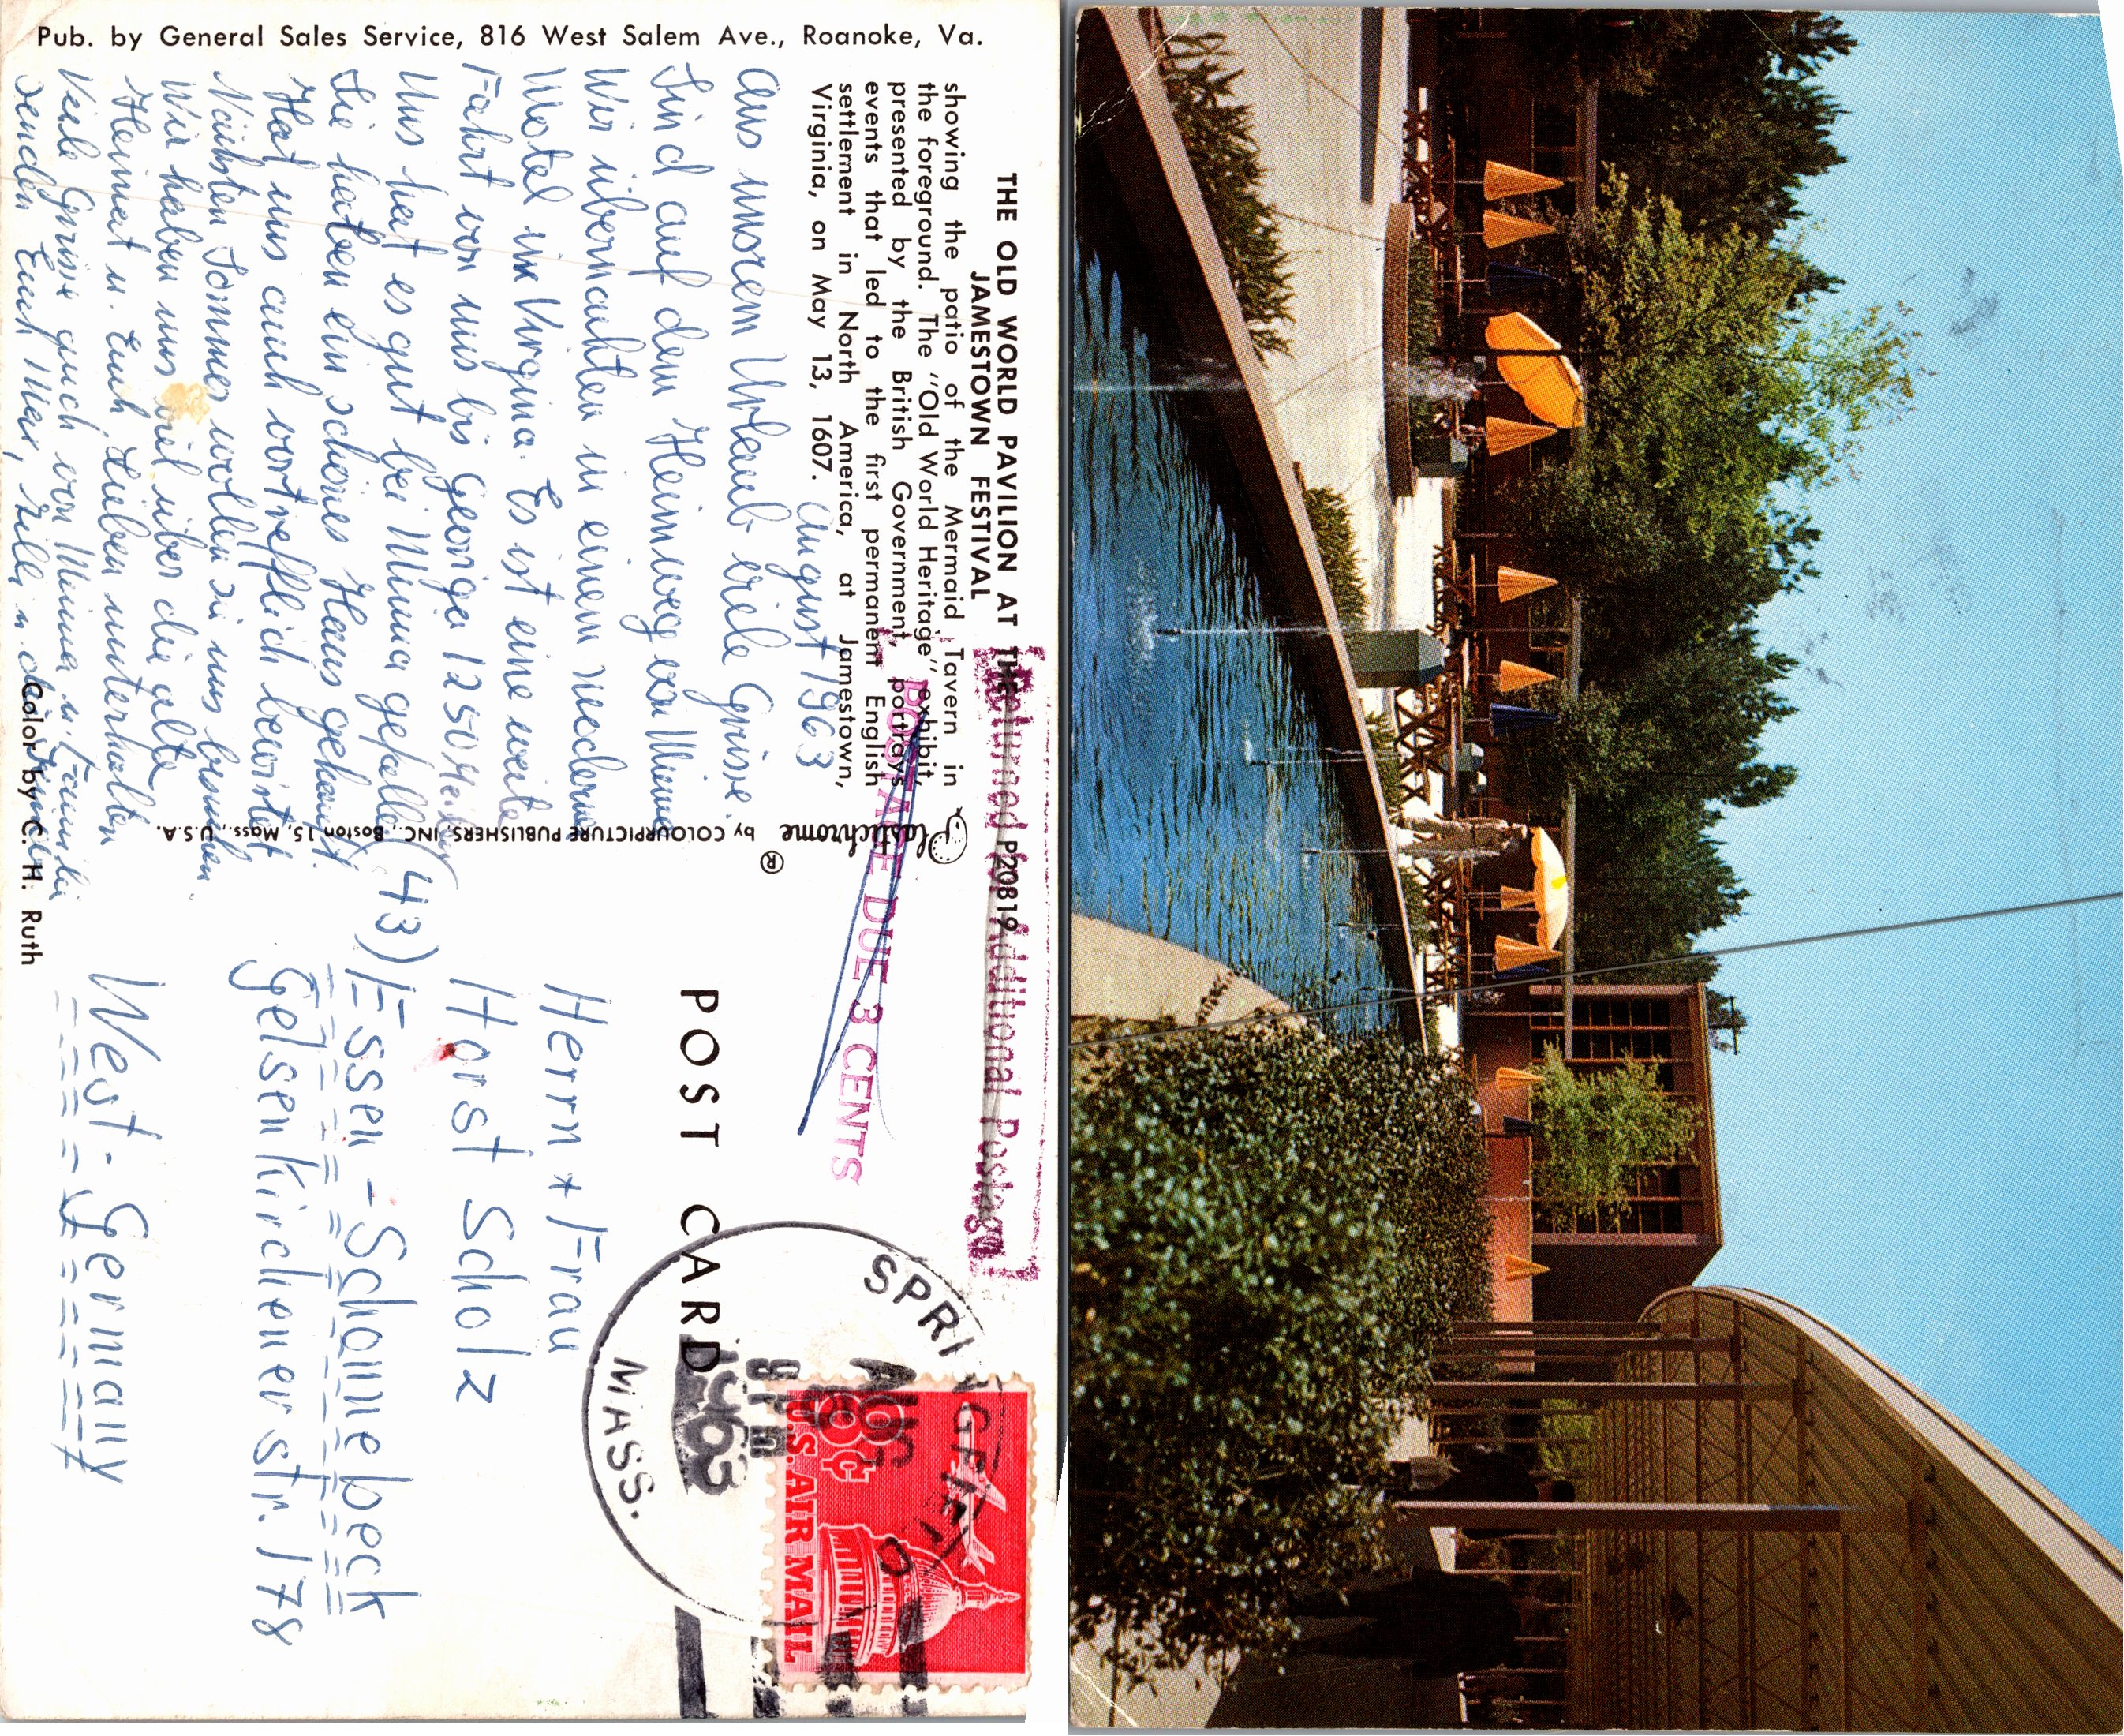 Pub. by General Sales Service, 816 West Salem Ave., Roanoke, Va.
THE OLD WORLD PAVILION AT THE
JAMESTOWN FESTIVAL
showing the patio of the Mermaid Tavern in
the foreground. The "Old World Heritage" exhibit,
presented by the British Government, portrays
events that led to the first permanent English
settlement in North America, at Jamestown,
Virginia, on May 13, 1607.
August 1963
Aus unsrem Urlaub viele Grüsse.
Sind auf dem Heimweg von Minna
Wir übernachten in einem modernen
Motel in Virginia. Es ist eine weite
Fahrt von uns bis Georgia 1250 Meilen
Uns hat es gut bei Minna gefallen
Sie haben ein schönes Haus gekauft.
Hat uns auch vortrefflich bewirtet
Nächsten Sommer wollen sie uns besuchen
Wir haben uns viel über die alte
Heimat u. Euch Lieben unterhalten
Viele Grüsse auch von Minna u. Familie
senden Euch Max, u.
Color by C. H. Ruth
Plastichrome
®
by COLOURPICTURE PUBLISHERS, INC., Boston 15, Mass., U.S.A.
P20819
Returned Additional Postage
POSTAGE DUE 3 CENTS
POST CARD
SPRINGFIELD
AUG
9 PM
1963
MASS.
8¢
U.S. AIR MAIL
Herrn + Frau
Horst Scholz
(43) Essen - Schonnebeck
Gelsenkirchener str. 178
West-Germany